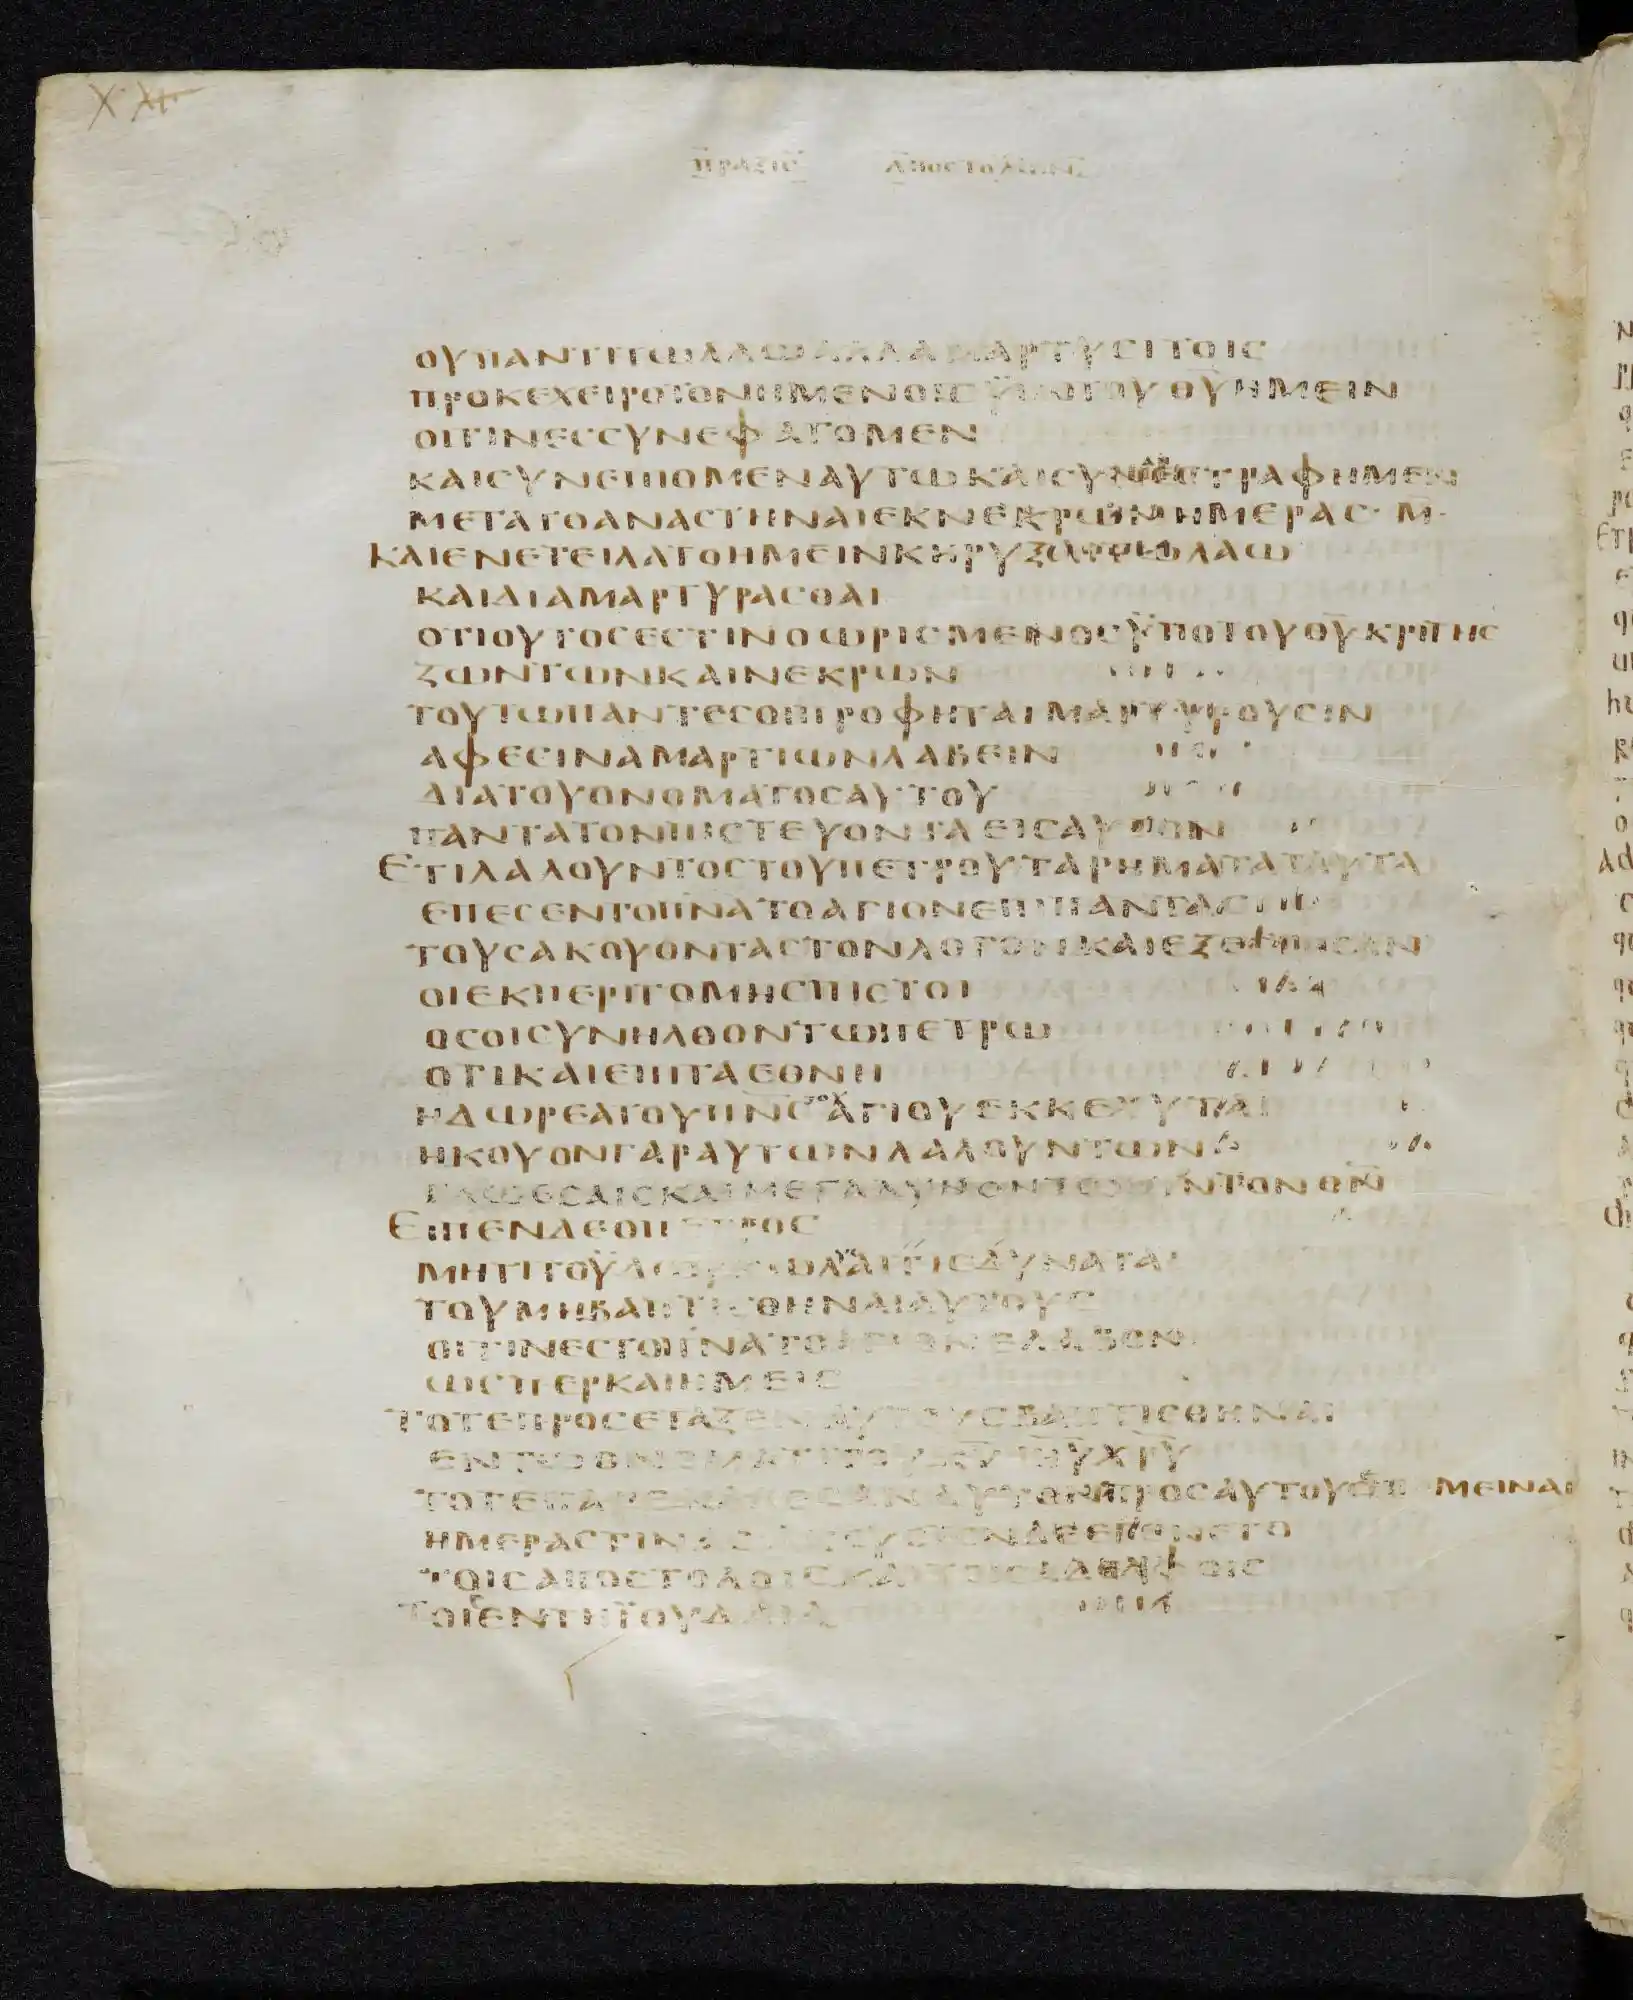 X XI
ΠΡΑΞΙϹ ΑΠΟϹΤΟΛΩΝ
ΟΥΠΑΝΤΙΤΩΛΑΩΑΛΛΑΜΑΡΤΥϹΙΤΟΙϹ
ΠΡΟΚΕΧΕΙΡΟΤΟΝΗΜΕΝΟΙϹΫΠΟΤΟΥΘ̅Υ̅ΗΜΕΙΝ
ΟΙΤΙΝΕϹϹΥΝΕΦΑΓΟΜΕΝ
ΚΑΙϹΥΝΕΠΙΟΜΕΝΑΥΤΩΚΑΙϹΥΝΕϹΤΡΑΦΗΜΕΝ
ΜΕΤΑΤΟΑΝΑϹΤΗΝΑΙΕΚΝΕΚΡΩΝΗΜΕΡΑϹ·Μ̅·
ΚΑΙΕΝΕΤΕΙΛΑΤΟΗΜΕΙΝΚΗΡΥΞΑΙΤΩΛΑΩ
ΚΑΙΔΙΑΜΑΡΤΥΡΑϹΘΑΙ
ΟΤΙΟΥΤΟϹΕϹΤΙΝΟΩΡΙϹΜΕΝΟϹΫΠΟΤΟΥΘ̅Υ̅ΚΡΙΤΗϹ
ΖΩΝΤΩΝΚΑΙΝΕΚΡΩΝ
ΤΟΥΤΩΠΑΝΤΕϹΟΙΠΡΟΦΗΤΑΙΜΑΡΤΥΡΟΥϹΙΝ
ΑΦΕϹΙΝΑΜΑΡΤΙΩΝΛΑΒΕΙΝ
ΔΙΑΤΟΥΟΝΟΜΑΤΟϹΑΥΤΟΥ
ΠΑΝΤΑΤΟΝΠΙϹΤΕΥΟΝΤΑΕΙϹΑΥΤΟΝ
ΕΤΙΛΑΛΟΥΝΤΟϹΤΟΥΠΕΤΡΟΥΤΑΡΗΜΑΤΑΤΑΥΤΑ
ΕΠΕϹΕΝΤΟΠ̅Ν̅Α̅ΤΟΑΓΙΟΝΕΠΙΠΑΝΤΑϹ
ΤΟΥϹΑΚΟΥΟΝΤΑϹΤΟΝΛΟΓΟΝΚΑΙΕΞΕϹΤΗϹΑΝ
ΟΙΕΚΠΕΡΙΤΟΜΗϹΠΙϹΤΟΙ
ΟϹΟΙϹΥΝΗΛΘΟΝΤΩΠΕΤΡΩ
ΟΤΙΚΑΙΕΠΙΤΑΕΘΝΗ
ΗΔΩΡΕΑΤΟΥΠ̅Ν̅Ϲ̅ΤΟΥΑΓΙΟΥΕΚΚΕΧΥΤΑΙ
ΗΚΟΥΟΝΓΑΡΑΥΤΩΝΛΑΛΟΥΝΤΩΝ
ΓΛΩϹϹΑΙϹΚΑΙΜΕΓΑΛΥΝΟΝΤΩΝΤΟΝΘ̅Ν̅
ΕΙΠΕΝΔΕΟΠΕΤΡΟϹ
ΜΗΤΙΤΟΫΔΩΡΚΩΛΥϹΑΙΤΙϹΔΥΝΑΤΑΙ
ΤΟΥΜΗΒΑΠΤΙϹΘΗΝΑΙΑΥΤΟΥϹ
ΟΙΤΙΝΕϹΤΟΠ̅Ν̅Α̅ΤΟΑΓΙΟΝΕΛΑΒΟΝ
ΩϹΠΕΡΚΑΙΗΜΕΙϹ
ΤΟΤΕΠΡΟϹΕΤΑΞΕΝΑΥΤΟΥϹΒΑΠΤΙϹΘΗΝΑΙ
ΕΝΤΩΟΝΟΜΑΤΙΤΟΥΚ̅Υ̅Ι̅Η̅Υ̅Χ̅Ρ̅Υ̅
ΤΟΤΕΠΑΡΕΚΑΛΕϹΑΝΑΥΤΟΝΠΡΟϹΑΥΤΟΥϹ ΜΕΙΝΑΙ
ΗΜΕΡΑϹΤΙΝΑϹ ΔΕΕΓΕΝΕΤΟ
ΤΟΙϹΑΠΟϹΤΟΛΟΙϹΚΑΙΤΟΙϹΑΔΕΛΦΟΙϹ
ΤΟΙϹΕΝΤΗΪΟΥΔΑΙΑ